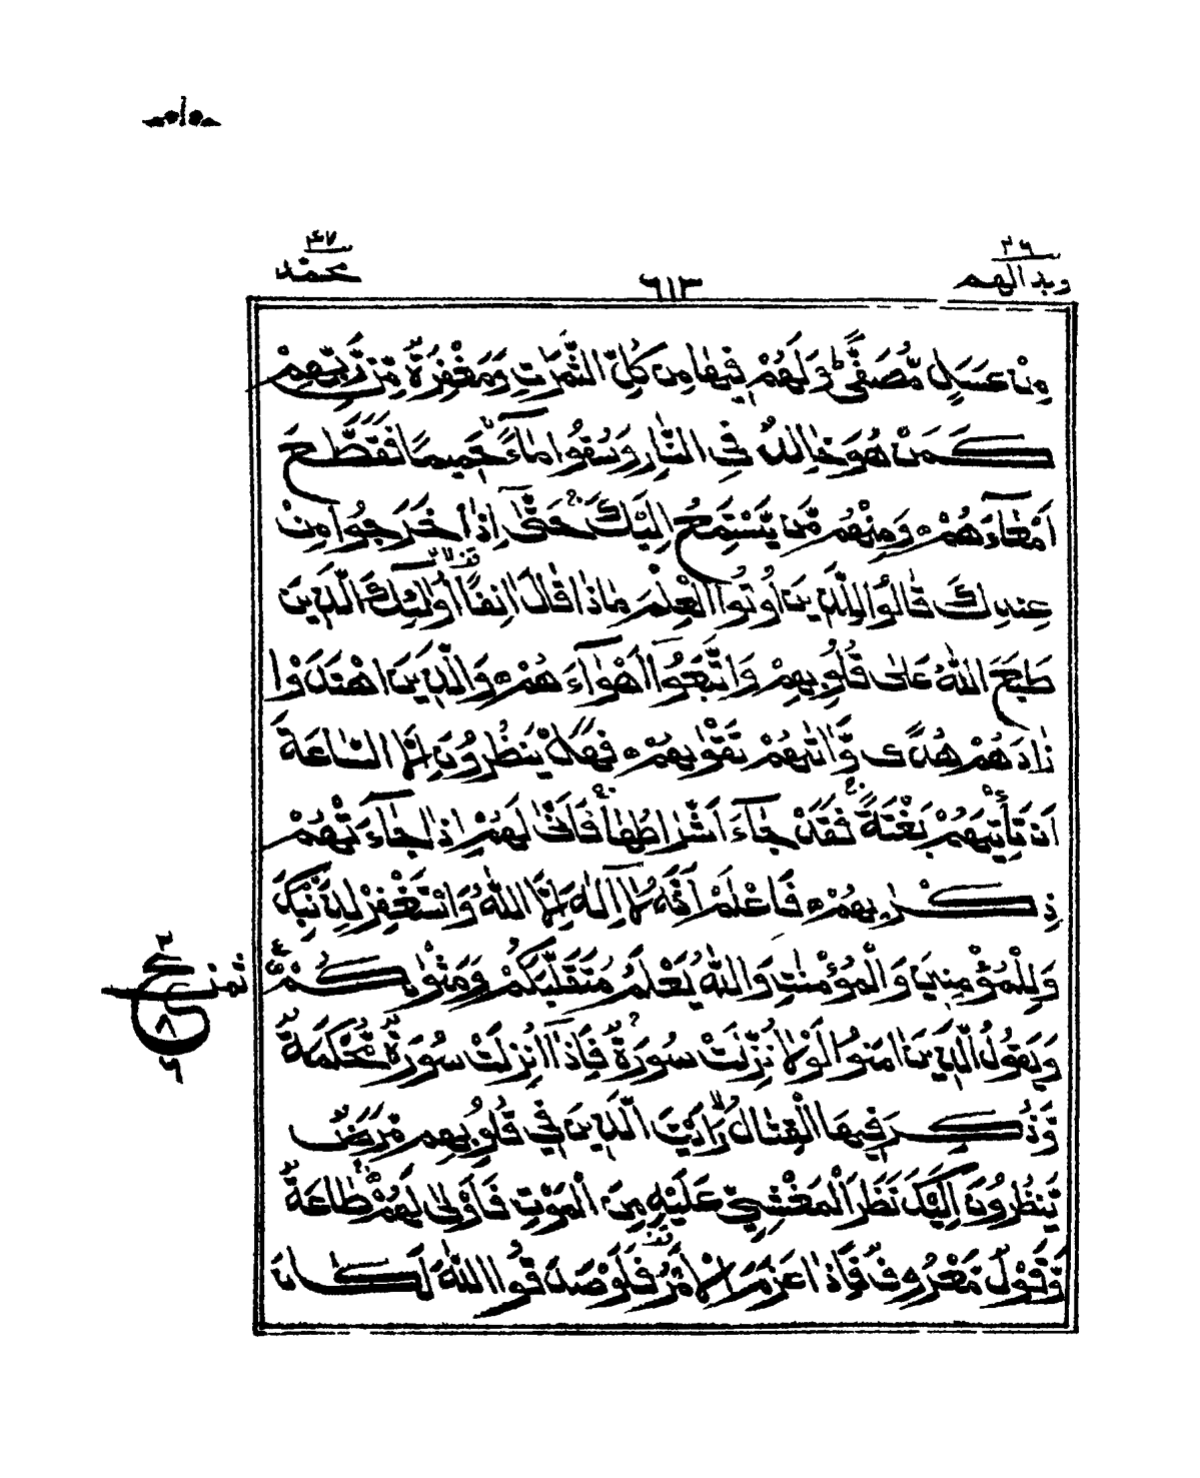 ٢٦
وبدالهم
٦١٣
٤٧
محمد
مِنْ عَسَلٍ مُّصَفًّى ؕ وَلَهُمْ فِيْهَا مِنْ كُلِّ الثَّمَرٰتِ وَمَغْفِرَةٌ مِّنْ رَّبِّهِمْ
كَمَنْ هُوَ خَالِدٌ فِي النَّارِ وَسُقُوْا مَآءً حَمِيْمًا فَقَطَّعَ
اَمْعَآءَهُمْ ۝ وَمِنْهُمْ مَّنْ يَّسْتَمِعُ اِلَيْكَ ۚ حَتّٰٓى اِذَا خَرَجُوْا مِنْ
عِنْدِكَ قَالُوْا لِلَّذِيْنَ اُوْتُوا الْعِلْمَ مَاذَا قَالَ اٰنِفًا ۟ اُولٰٓئِكَ الَّذِيْنَ
طَبَعَ اللّٰهُ عَلٰى قُلُوْبِهِمْ وَاتَّبَعُوْٓا اَهْوَآءَهُمْ ۝ وَالَّذِيْنَ اهْتَدَوْا
زَادَهُمْ هُدًى وَّاٰتٰىهُمْ تَقْوٰىهُمْ ۝ فَهَلْ يَنْظُرُوْنَ اِلَّا السَّاعَةَ
اَنْ تَاْتِيَهُمْ بَغْتَةً ۚ فَقَدْ جَآءَ اَشْرَاطُهَا ۚ فَاَنّٰى لَهُمْ اِذَا جَآءَتْهُمْ
ذِكْرٰىهُمْ ۝ فَاعْلَمْ اَنَّهٗ لَآ اِلٰهَ اِلَّا اللّٰهُ وَاسْتَغْفِرْ لِذَنْۢبِكَ
وَلِلْمُؤْمِنِيْنَ وَالْمُؤْمِنٰتِ ؕ وَاللّٰهُ يَعْلَمُ مُتَقَلَّبَكُمْ وَمَثْوٰىكُمْ ۝
وَيَقُوْلُ الَّذِيْنَ اٰمَنُوْا لَوْلَا نُزِّلَتْ سُوْرَةٌ ۚ فَاِذَآ اُنْزِلَتْ سُوْرَةٌ مُّحْكَمَةٌ
وَّذُكِرَ فِيْهَا الْقِتَالُ ۙ رَاَيْتَ الَّذِيْنَ فِيْ قُلُوْبِهِمْ مَّرَضٌ
يَّنْظُرُوْنَ اِلَيْكَ نَظَرَ الْمَغْشِيِّ عَلَيْهِ مِنَ الْمَوْتِ ؕ فَاَوْلٰى لَهُمْ ۚ طَاعَةٌ
وَّقَوْلٌ مَّعْرُوْفٌ ۟ فَاِذَا عَزَمَ الْاَمْرُ ۟ فَلَوْ صَدَقُوا اللّٰهَ لَكَانَ
ثمن
ع
٢
٨
٦